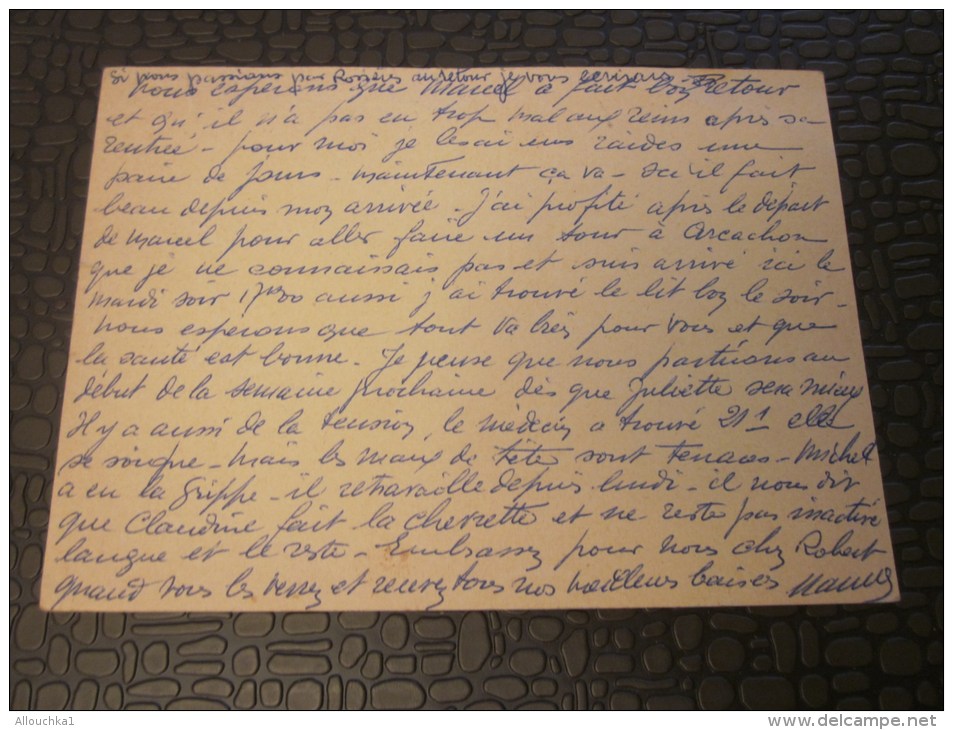 Si nous passions par Rosières au retour je vous écrirais
Nous esperons que Marcel a fait bon retour
et qu'il n'a pas eu trop mal aux reins après sa
rentrée - pour moi je les ai eus raides une
paire de jours - maintenant ça va - Ici il fait
beau depuis mon arrivée. J'ai profité après le départ
de Marcel pour aller faire un tour à Arcachon
que je ne connaissais pas et suis arrivé ici le
mardi soir 17h00 aussi j'ai trouvé le lit bon le soir -
Nous esperons que tout va bien pour vous et que
la santé est bonne. Je pense que nous partirons au
début de la semaine prochaine dès que Juliette sera mieux
Il y a aussi de la tension, le médecin a trouvé 21 elle
se soigne - mais les maux de tête sont tenaces - Michel
a eu la grippe - il retravaille depuis lundi - il nous dit
que Claudine fait la chevrette et ne reste pas inactive
langue et le reste - Embrassez pour nous chez Robert
quand vous les verrez et recevez tous nos meilleurs baisers
Allouchka1
www.delcampe.net